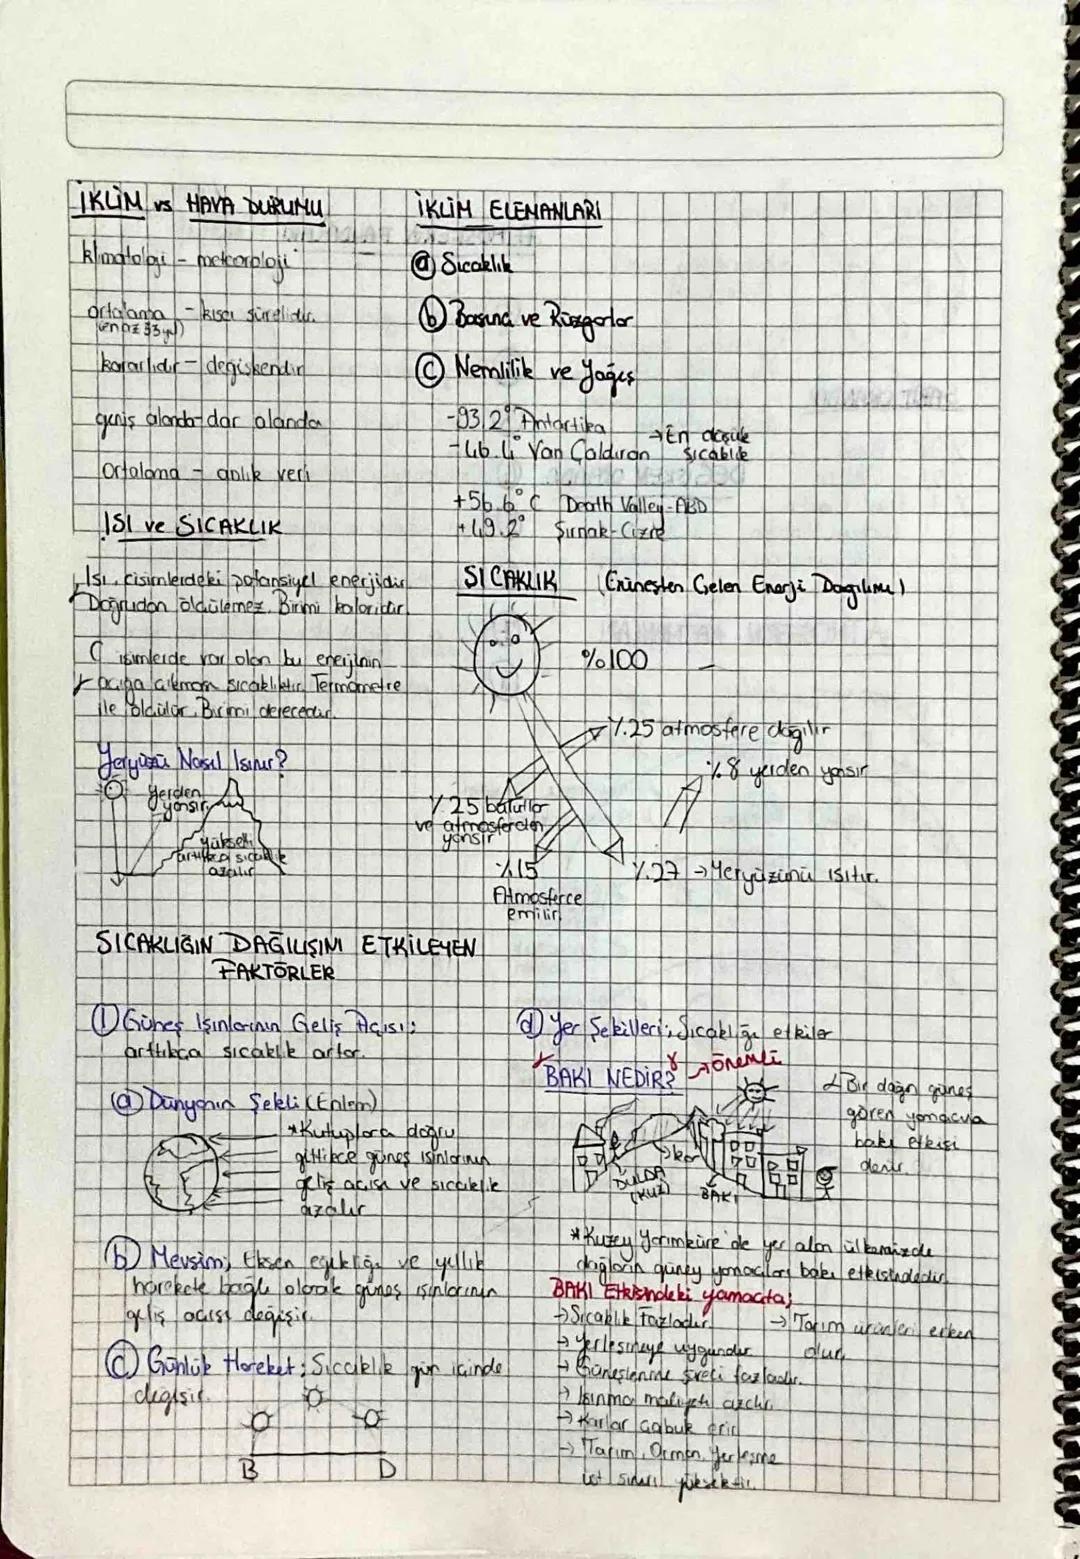 İKLİM vs HAVA DURUMU
klimatoloji - meteoroloji
ortalama - kısa sürelidir.
(en az 35 yıl)
kararlıdır - değişkendir
geniş alanda - dar alanda
Ortalama - anlık veri
ISI ve SICAKLIK
Isı, cisimlerdeki potansiyel enerjidir.
Doğrudan ölçülemez. Birimi kaloridir.
Cisimlerde var olan bu enerjinin
açığa çıkması sıcaklıktır. Termometre
ile ölçülür. Birimi derecedir.
Yeryüzü Nasıl Isınır?
Yerden
yansır
yükselti
arttıkça sıcaklık
azalır
İKLİM ELEMANLARI
a) Sıcaklık
b) Basınç ve Rüzgarlar
c) Nemlilik ve Yağış
-93,2° Antartika
-46.4° Van Çaldıran
→ En düşük
sıcaklık
+56.6°C Death Valley-ABD
+49.2° Şırnak-Cizre
SICAKLIK (Güneşten Gelen Enerji Dağılımı)
%100
%25 atmosfere dağılır
%8 yerden yansır
%25 bulutlar
ve atmosferden
yansır
%15
Atmosferce
emilir.
%27 → Yeryüzünü ısıtır.
SICAKLIĞIN DAĞILIŞINI ETKİLEYEN
FAKTÖRLER
1) Güneş Işınlarının Geliş Açısı;
arttıkça sıcaklık artar.
a) Dünyanın Şekli (Enlem)
* Kutuplara doğru
gittikçe güneş ışınlarının
geliş açısı ve sıcaklık
azalır
b) Mevsim; Eksen eğikliği ve yıllık
harekete bağlı olarak güneş ışınlarının
geliş açısı değişir.
c) Günlük Hareket; Sıcaklık gün içinde
değişir.
B D
d) Yer Şekilleri; Sıcaklığı etkiler
BAKI NEDİR? → önemli
Bir dağın güneş
gören yamacına
bakı etkisi
denir.
kar
DULDA
(KUZ)
BAKI
* Kuzey Yarımküre'de yer alan ülkemizde
dağların güney yamaçları bakı etkisindedir.
BAKI Etkisindeki yamaçta;
→ Sıcaklık Fazladır.
→ Yerleşmeye uygundur
→ Güneşlenme süresi fazladır.
→ Isınma maliyeti azdır.
→ Karlar çabuk erir
→ Tarım, Orman, Yerleşme
üst sınırı yüksektir.
→ Tarım ürünleri erken
olur.